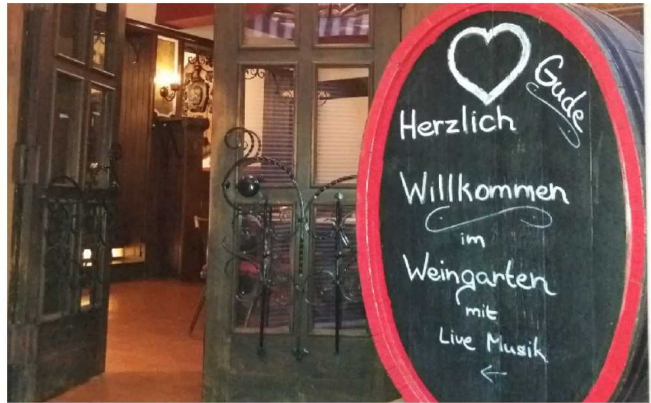 Gude
Herzlich
Willkommen
im
Weingarten
mit
Live Musik
←